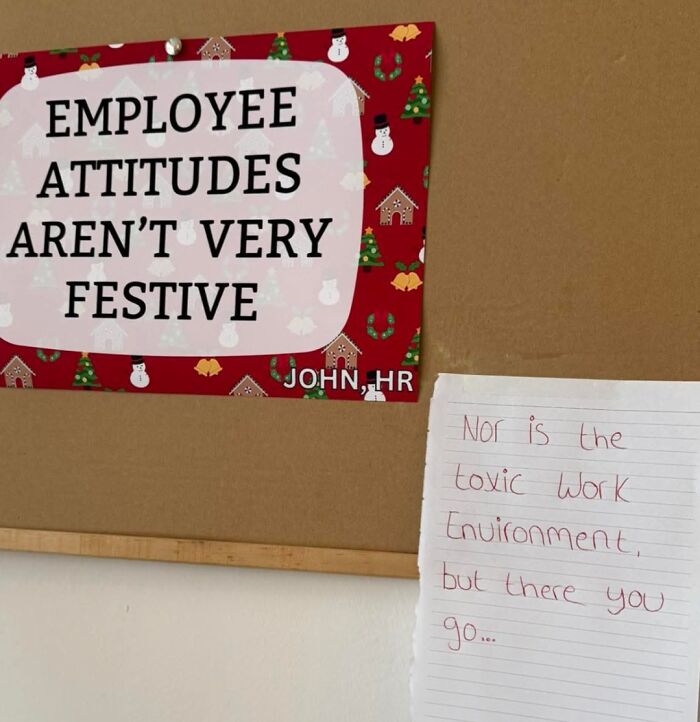 EMPLOYEE
ATTITUDES
AREN'T VERY
FESTIVE
JOHN, HR
Nor is the
toxic work
Environment,
but there you
go...